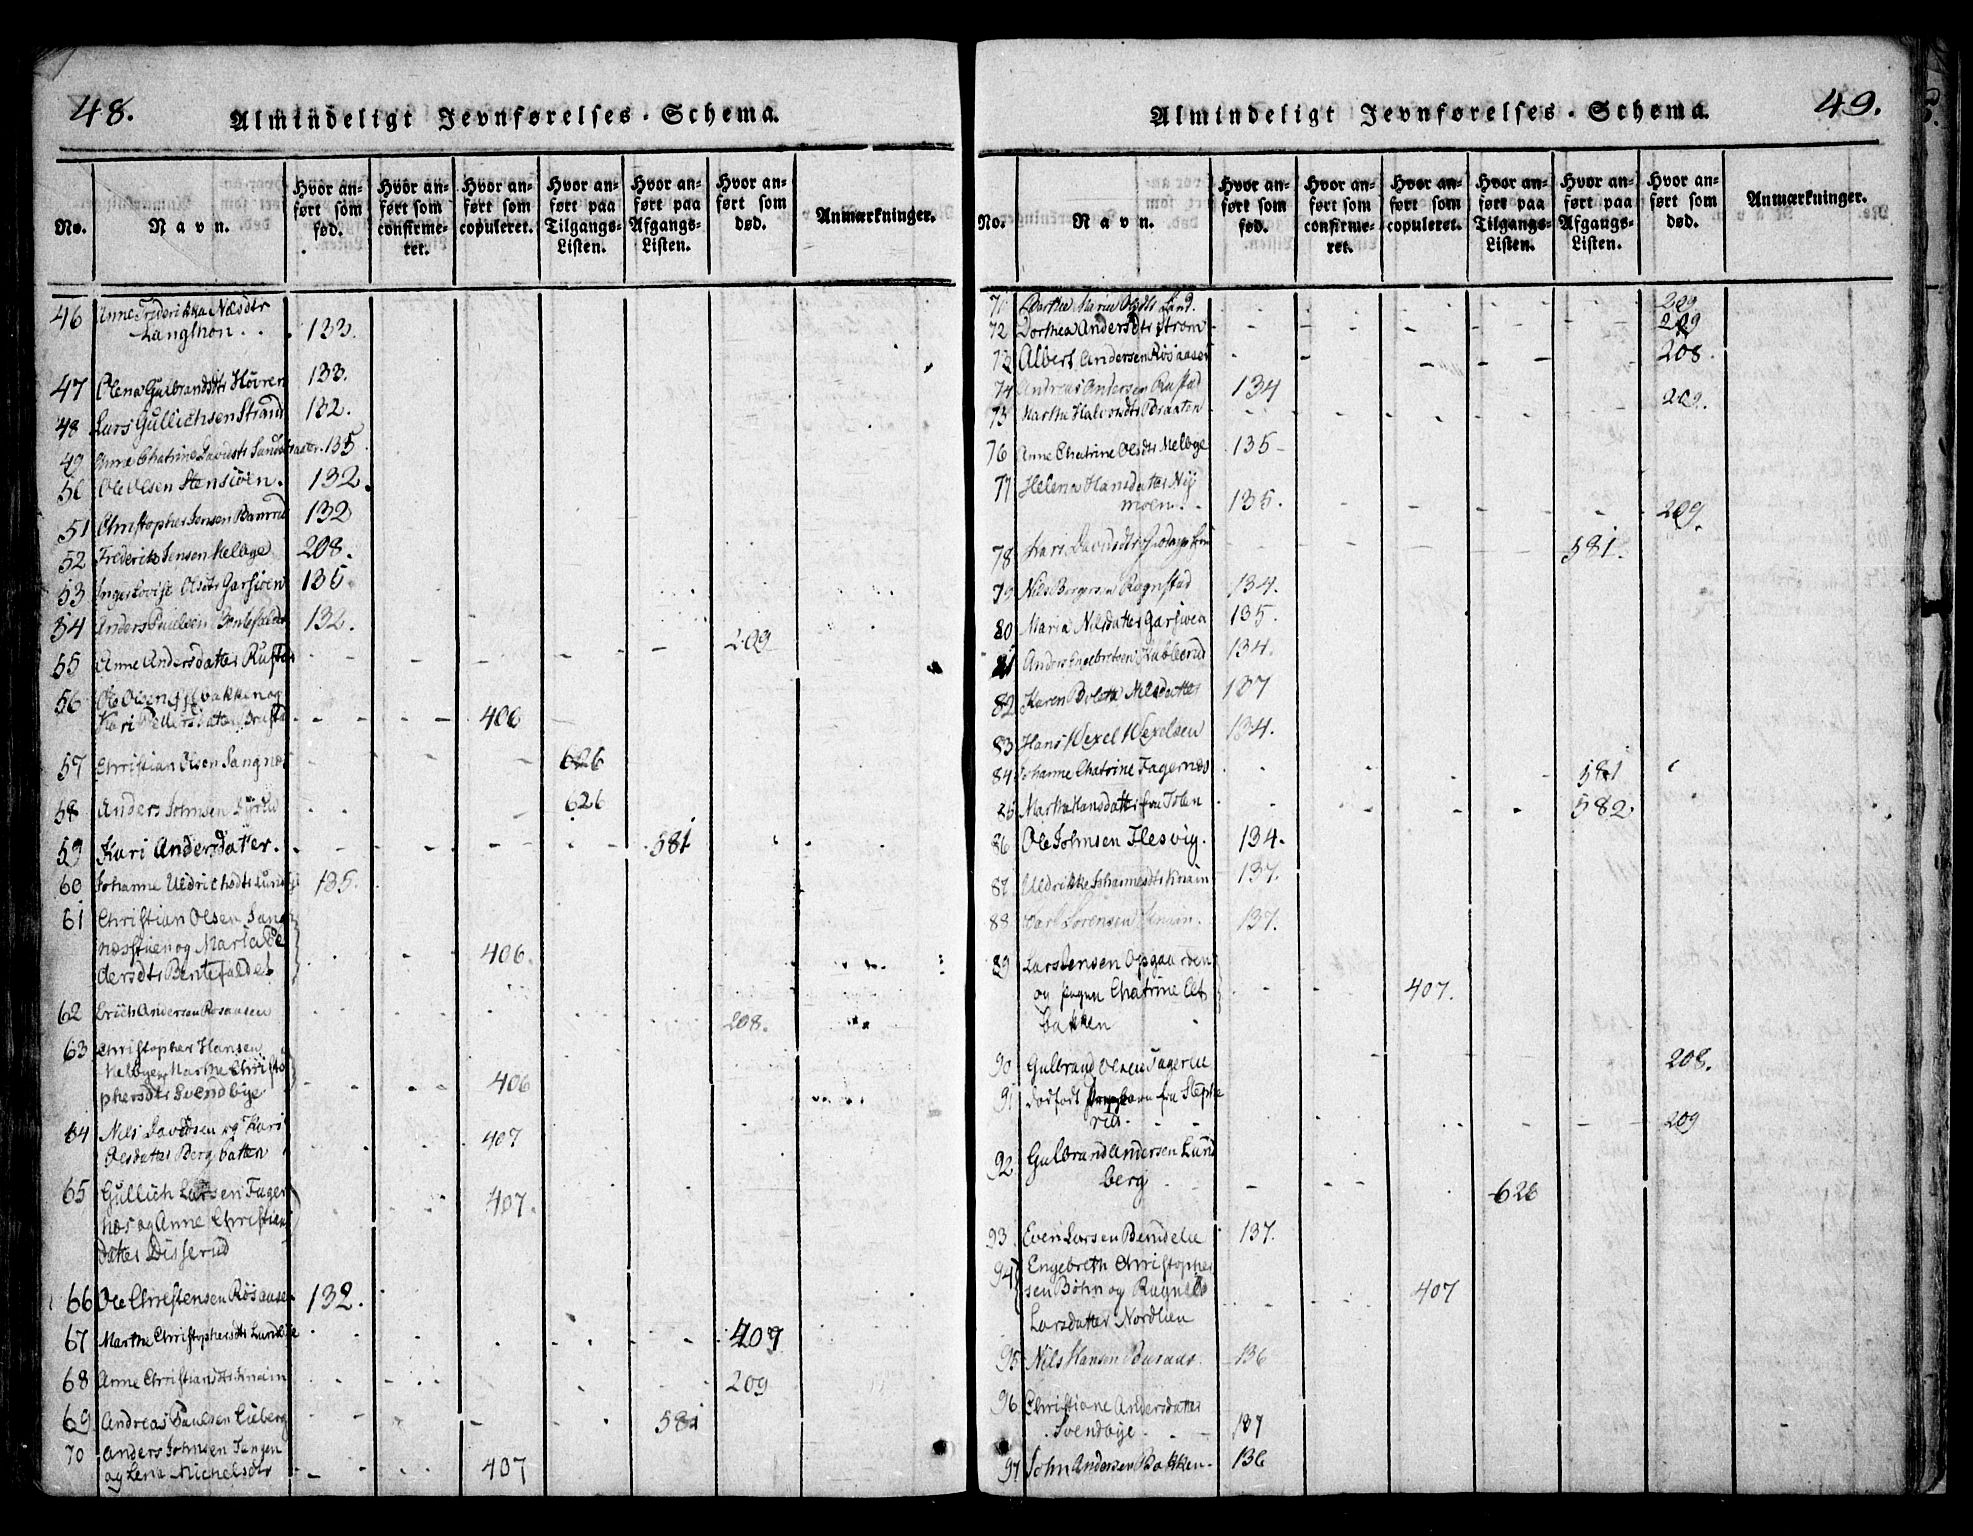 48.
Almindeligt Jevnførelses-Schema.
No.
Navn.
Hvor anført som fød.
Hvor anført som confirmeret.
Hvor anført som copuleret.
Hvor anført paa Tilgangs-Listen.
Hvor anført paa Afgangs-Listen.
Hvor anført som død.
Anmærkninger.
46 Anne Frederikka Nilsdtr
Langmon . . 133.
47 Olena Gulbrandsdtr Høvren 133.
48 Lars Gullichsen Strand 132.
49 Anne Chatrine 135.
50 Ole Olsen Stensiøen. 132.
51 Christopher Jensen 132
52 Frederik Jensen Melbye 208.
53 Inger Lovise Olsdtr Garsiøen 135.
54 Anders Paulsen 132.
55 Anne Andersdatter Rustad 209
56 Ole Olsen og
Kari Pedersdatter 406
57 Christian Olsen Sangnæs 626
58 Anders Johnsen 626
59 Kari Andersdatter. 581
60 Johanne Uldrichsdtr Lundbye 135.
61 Christian Olsen Sang
næsstuen og Maria Pe
dersdtr Bentefaldet 406.
62 Erich Andersen Rosaasen 208.
63 Christopher Hansen
Melbye og Marthe Christo
phersdtr Svendbye 406
64 Nils Davidsen og Kari
Olsdatter Bergbatten 407
65 Gullich Larsen Fager
næs og Anne Christians
datter Disserud 407.
66 Ole Christensen Røsaasen 132.
67 Marthe Christophersdtr Lundbye 209
68 Anne Christiansdtr 209
69 Andreas Paulsen Lieberg 581
70 Anders Johnsen Tangen
og Lena Michelsdtr 407
49.
Almindeligt Jevnførelses-Schema.
No.
Navn.
Hvor anført som fød.
Hvor anført som confirmeret.
Hvor anført som copuleret.
Hvor anført paa Tilgangs-Listen.
Hvor anført paa Afgangs-Listen.
Hvor anført som død.
Anmærkninger.
71 Dorthea Maria Olsdtr 209
72 Dorthea Andersdtr Strøm 209
73 Albert Andersen Røsaasen 208.
74 Andreas Andersen Rustad 134
75 Marthe Halvorsdtr Braaten 209.
76 Anne Chatrine Olsdtr Melbye 135
77 Helena Hansdatter Ny
moen. 135. 209.
78 Kari Davidsdtr 581.
79 Nils Borgersen Rognstad 134.
80 Maria Nilsdatter Garsiøen 135.
81 Anders Engebretsen Kablerud 134.
82 Karen Bolette Nilsdatter 137
83 Hans Wexel Wexelsen 134.
84 Johanne Chatrine Fagernæs 581
85 Marthe Hansdatter fra 582.
86 Ole Johnsen Flesvig. 134.
87 Uldrikke Johannesdtr 137.
88 Carl Sørensen 137.
89 Lars Jensen Opgaarden
og Chatrine Elt
bakken 407.
90 Gulbrand Olsen 208.
91 dødfødt fra Stephe
rud. 209
92 Gulbrand Andersen Lund
berg 626
93 Even Larsen 137.
94 Engebreth Christopher
sen Bøhn og Ragnild
Larsdatter Nordlien 407
95 Nils Hansen 136
96 Christiane Andersdatter
Svendbye 137
97 John Andersen Bakken 136